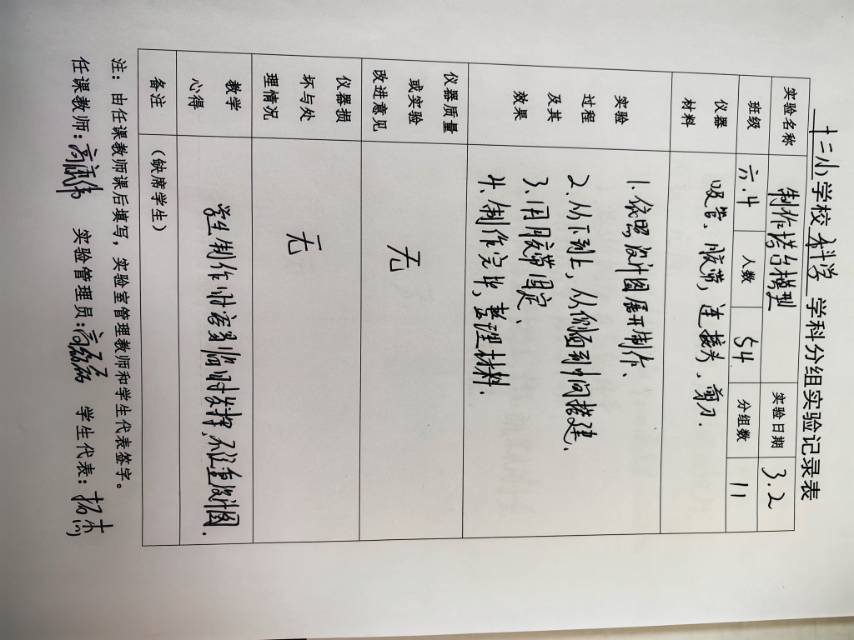 十二小学校 科学 学科分组实验记录表
实验名称 制作塔台模型 实验日期 3.2
班级 六.4 人数 54 分组数 11
仪器材料 吸管、胶带、连接头、剪刀.
实验过程及其效果
1. 依照设计图展开制作、
2. 从下到上,从侧面到中间搭建、
3. 用胶带固定、
4. 制作完毕,整理材料.
仪器质量或实验改进意见 无
仪器损坏与处理情况 无
教学心得 学生制作时容易临时发挥,不注重设计图.
备注 (缺席学生)
注:由任课教师课后填写,实验室管理教师和学生代表签字。
任课教师: 实验管理员: 学生代表: